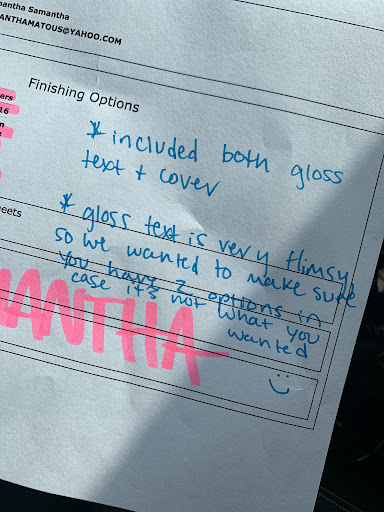 mantha Samantha
ANTHAMATOUS@YAHOO.COM
Finishing Options
ers
16
* included both gloss
text + cover
* gloss text is very flimsy
so we wanted to make sure
you have 2 options in
case it's not what you
wanted
eets
MANTHA